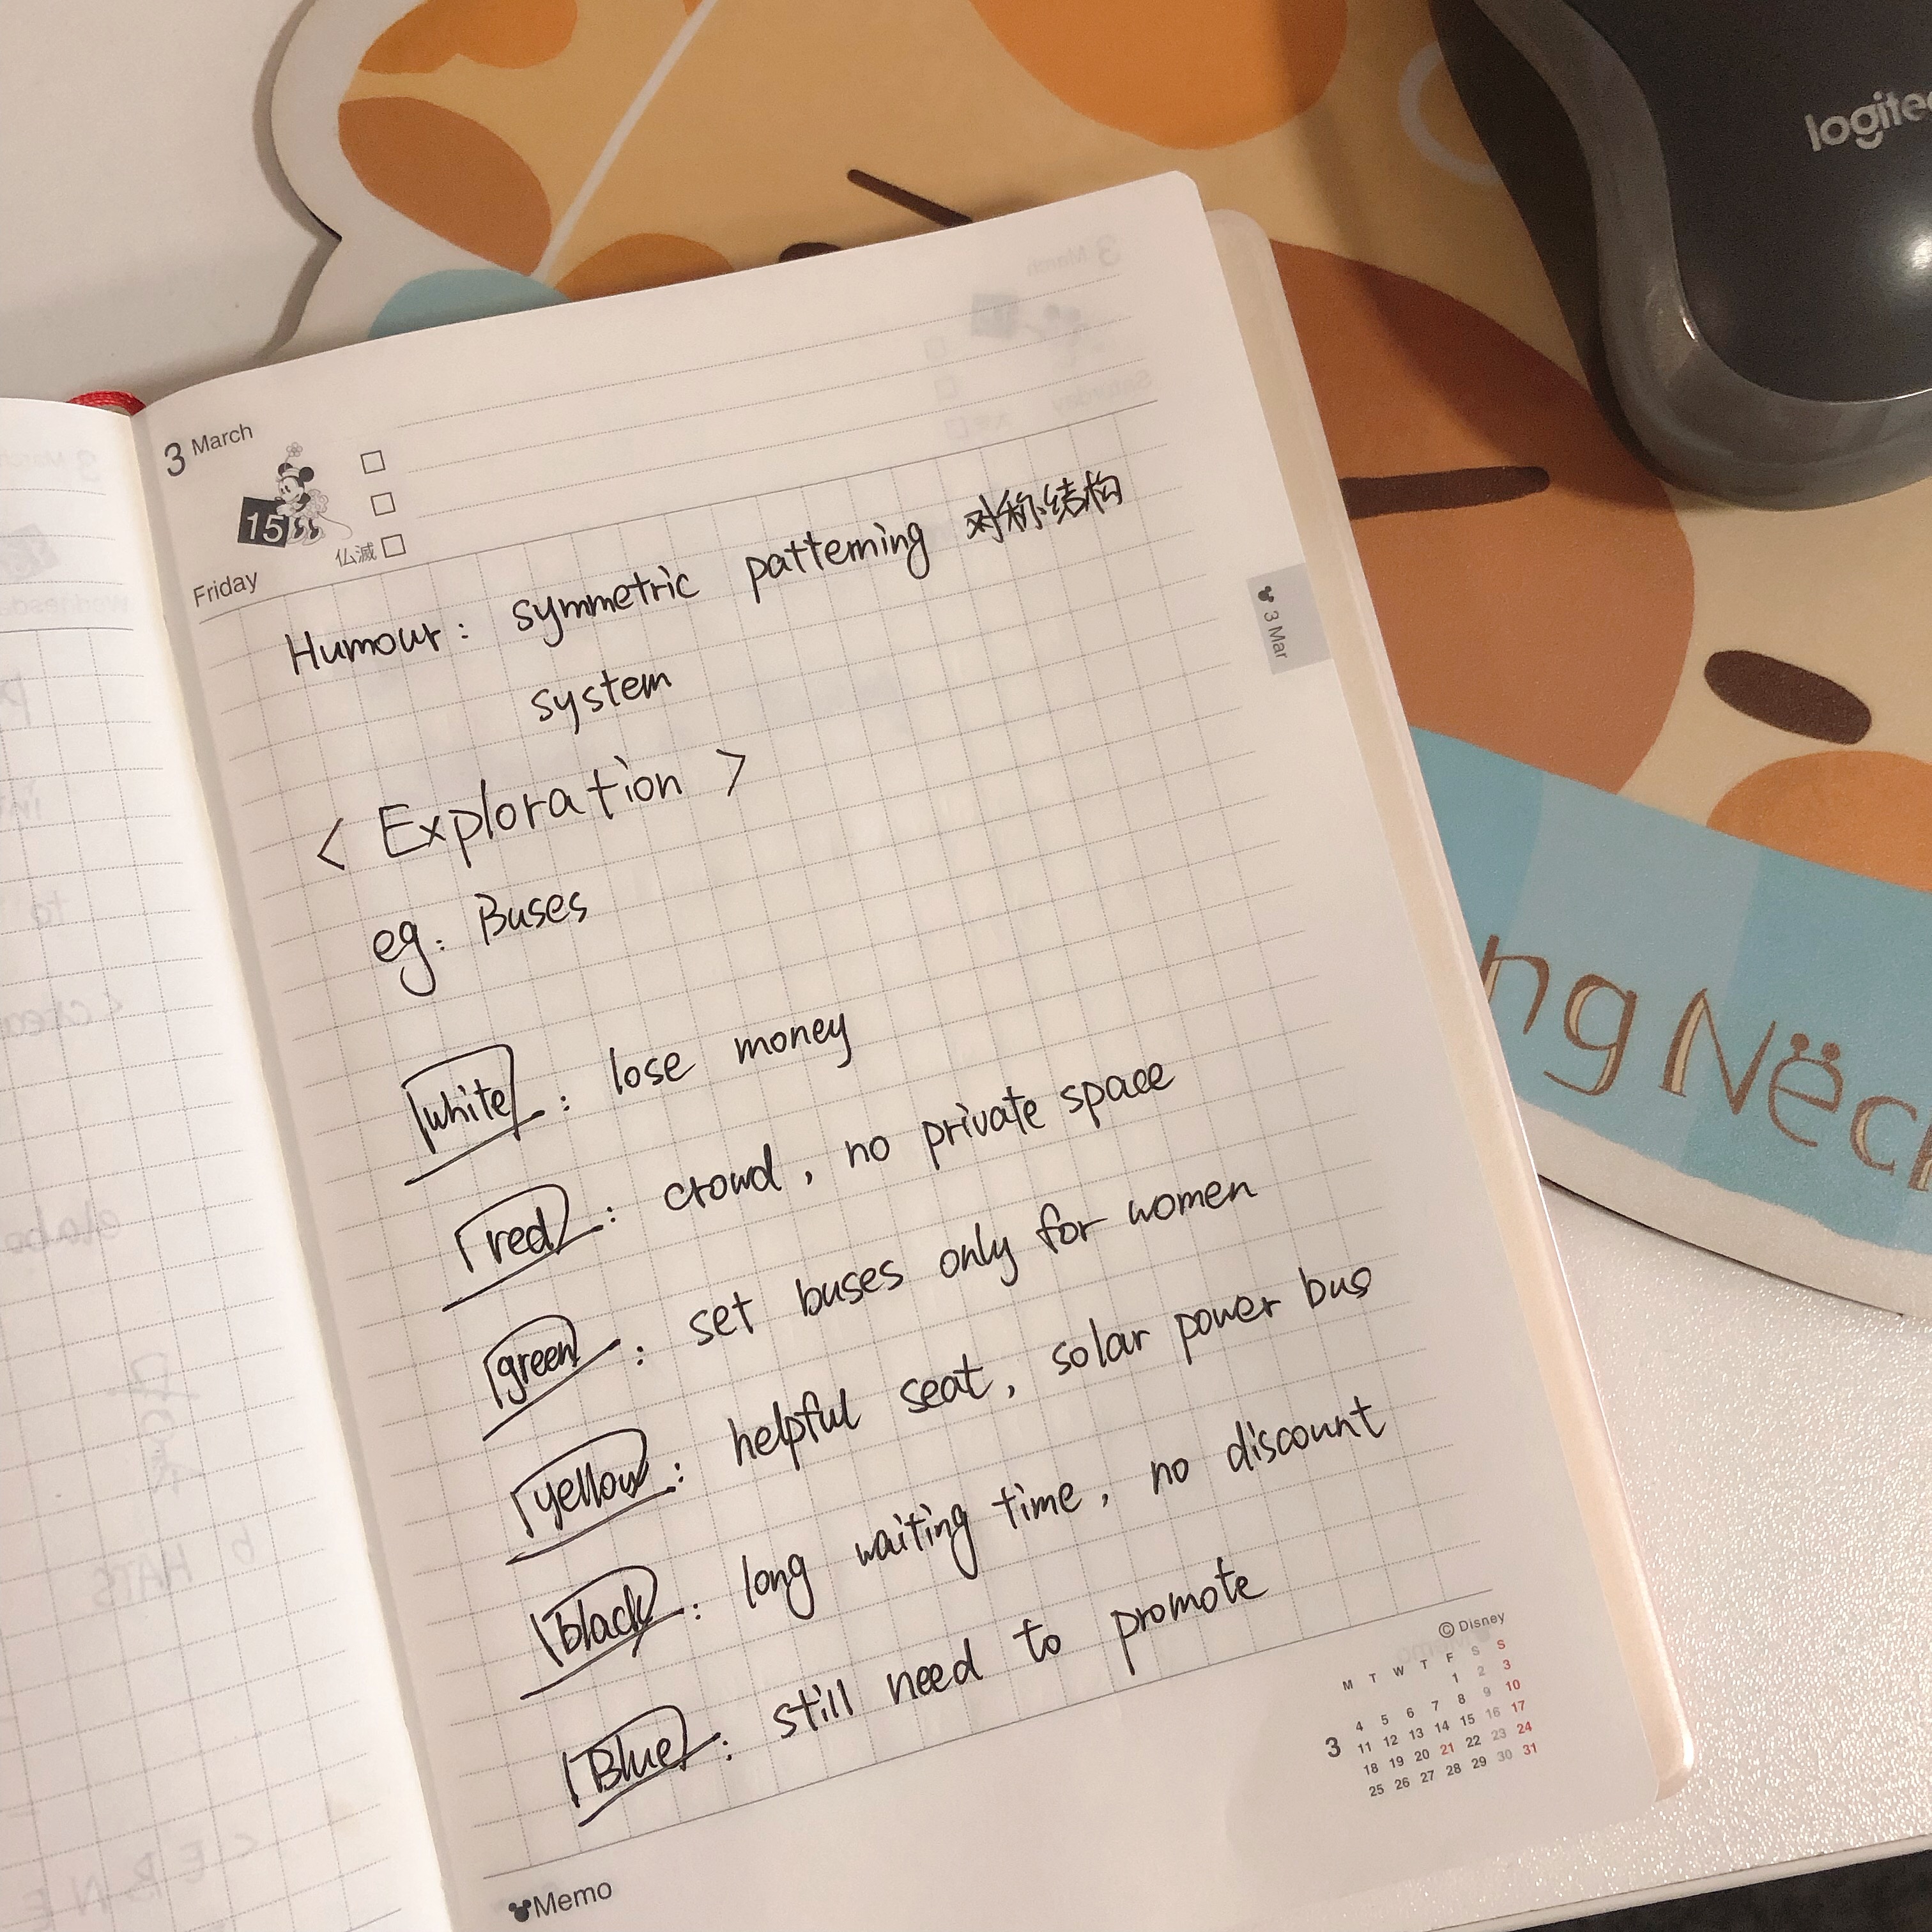 3 March
15
仏滅
Friday
Humour: symmetric patterning 对称结构
system
< Exploration >
eg: Buses
white: lose money
red: crowd, no private space
green: set buses only for women
yellow: helpful seat, solar power bus
black: long waiting time, no discount
Blue: still need to promote
© Disney
3
M T W T F S S
1 2 3
4 5 6 7 8 9 10
11 12 13 14 15 16 17
18 19 20 21 22 23 24
25 26 27 28 29 30 31
Memo
3 Mar
logitec
ng Nëck